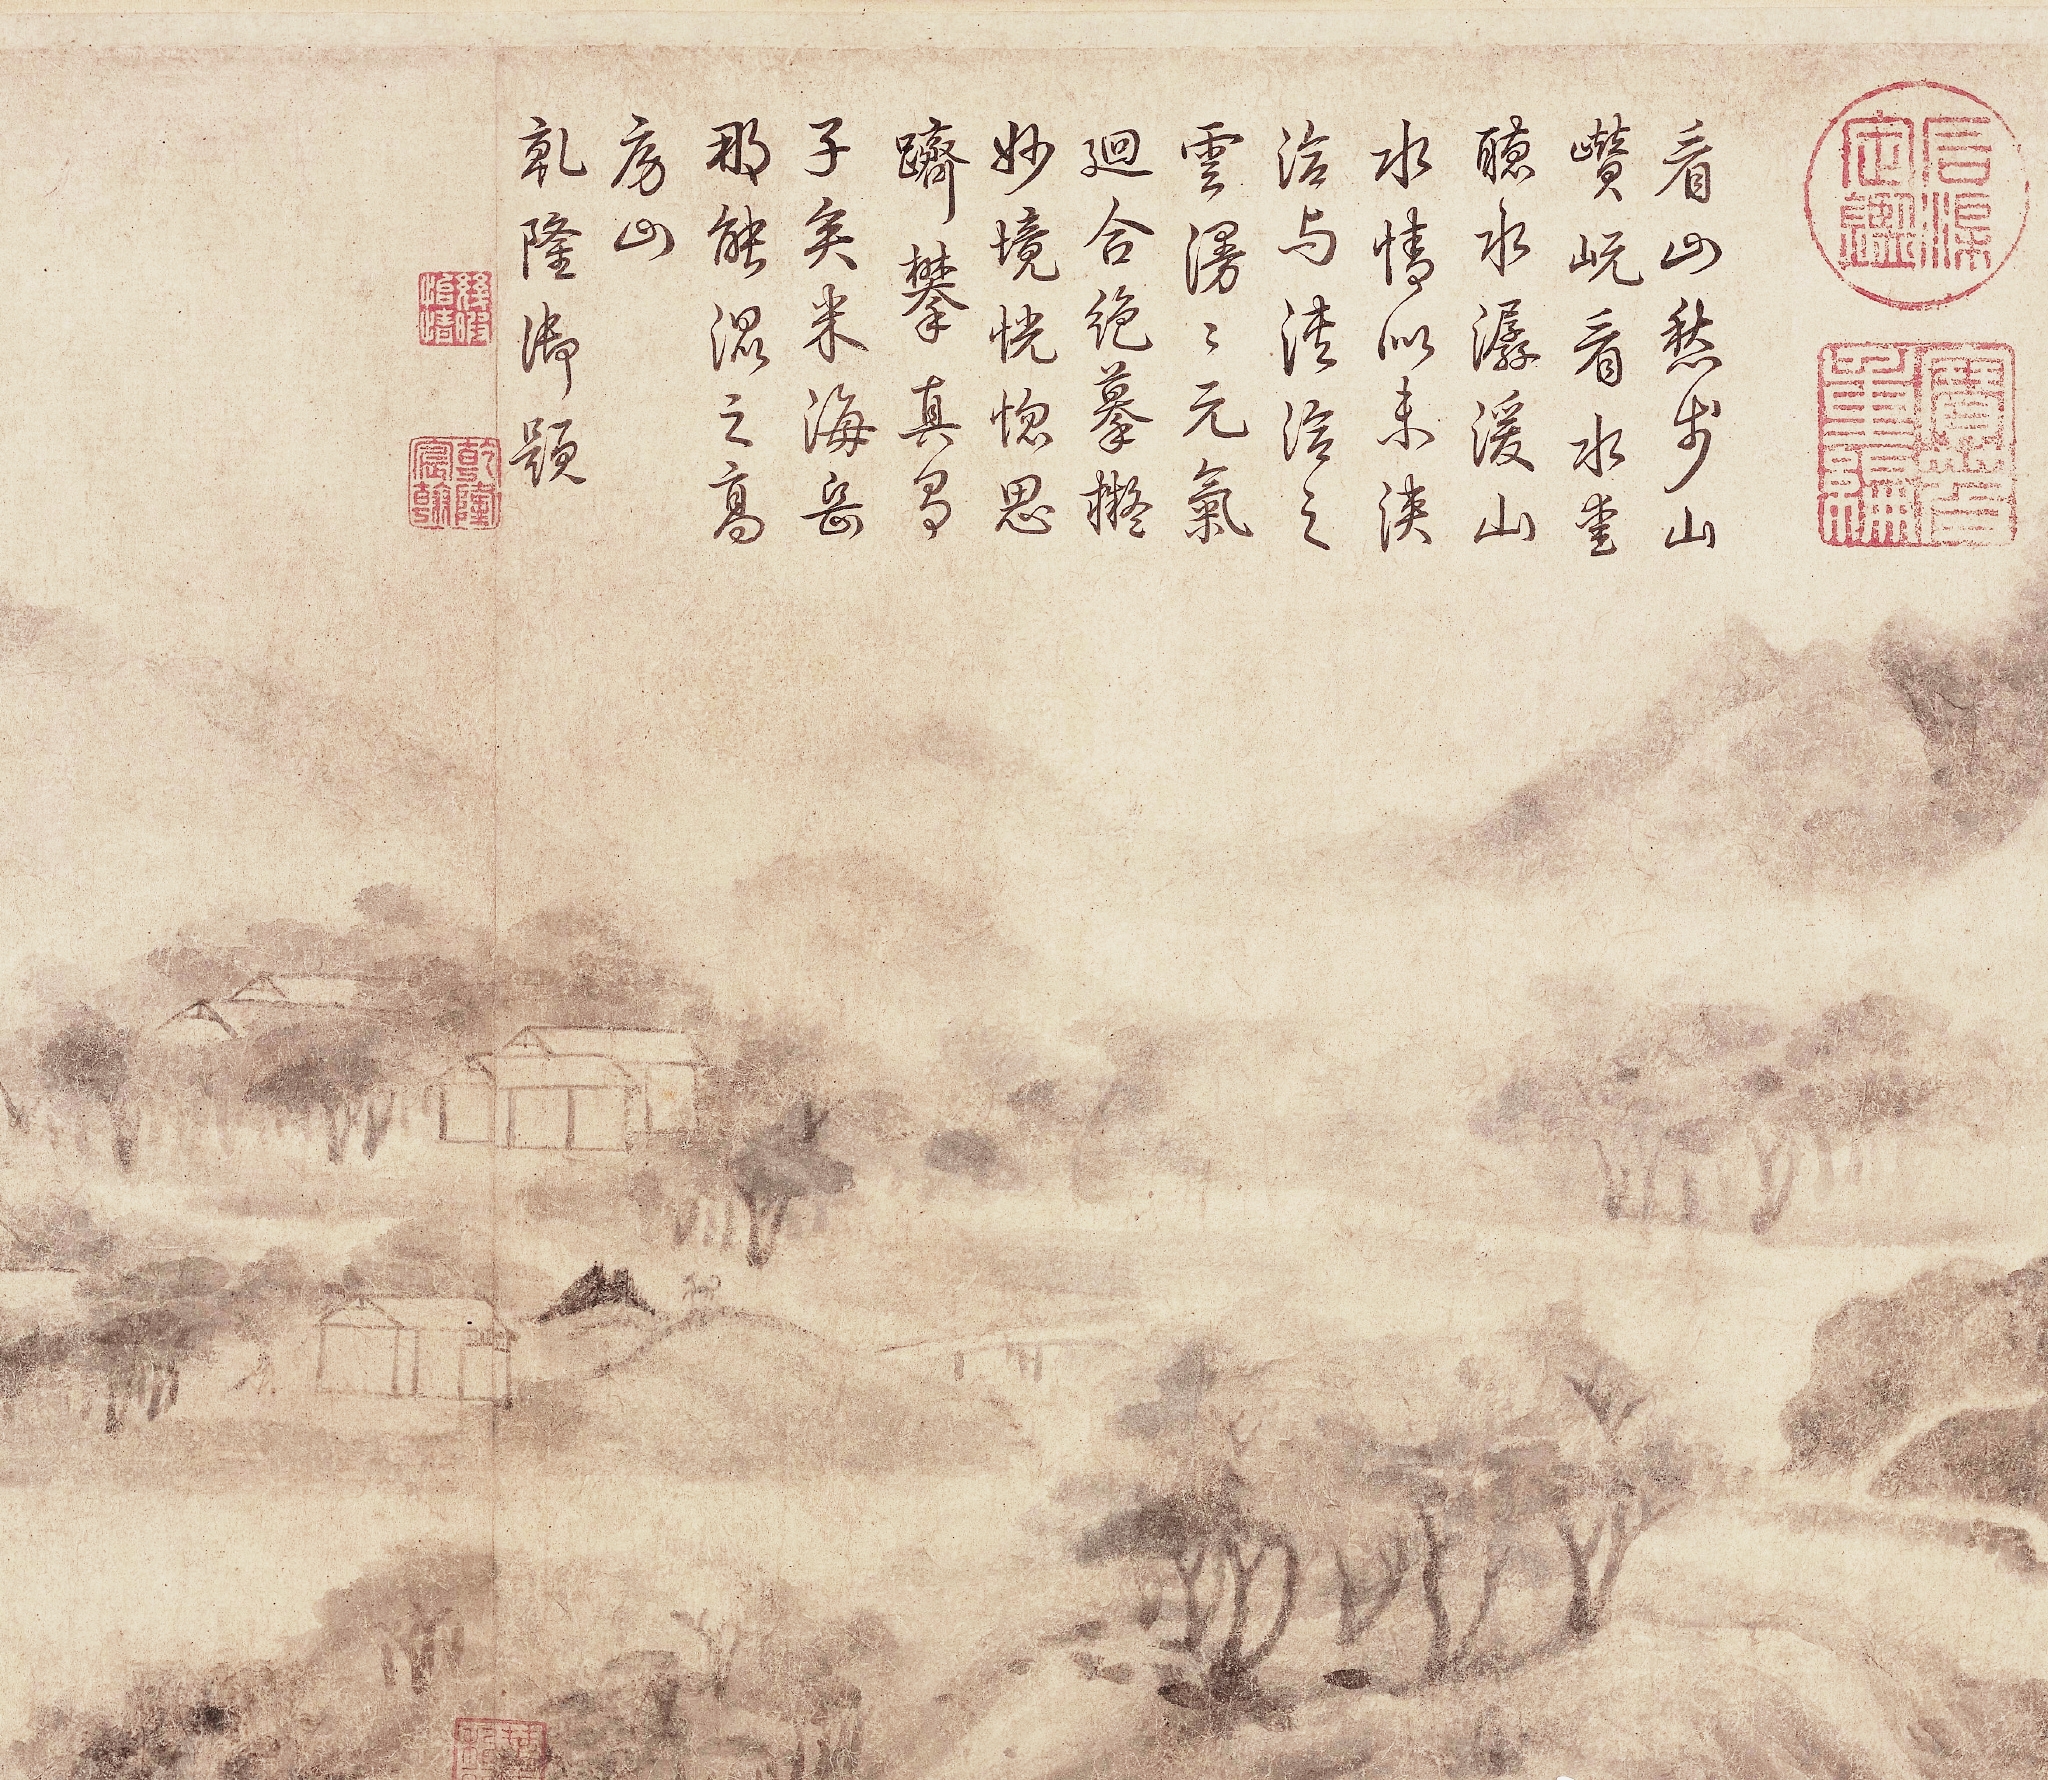 石渠定鑑
寶笈重編
看山愁步山
巑岏看水
聽水潺湲山
水情似未浹
洽与浹洽之
雲漫〻元氣
迴合絕摹擬
妙境恍惚思
躋攀真
子矣米海岳
那能混之高
房山
乾隆御題
幾暇怡情
乾隆宸翰